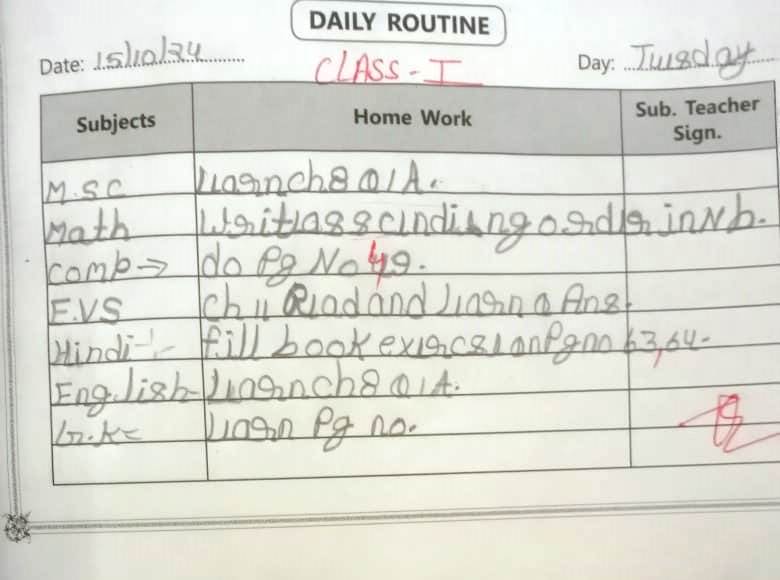 DAILY ROUTINE
Date: 15/10/24 Day: Tuesday
CLASS - I
Subjects Home Work Sub. Teacher Sign.
M.SC Learn ch 8 Q/A.
Math Write asscinding order in Nb.
Comp → do Pg No 49.
E.V.S Ch 11 Read and Learn Q Ans.
Hindi - fill book exercse on Pg no 63,64.
English - Learn ch 8 Q/A.
G.K Learn Pg no.